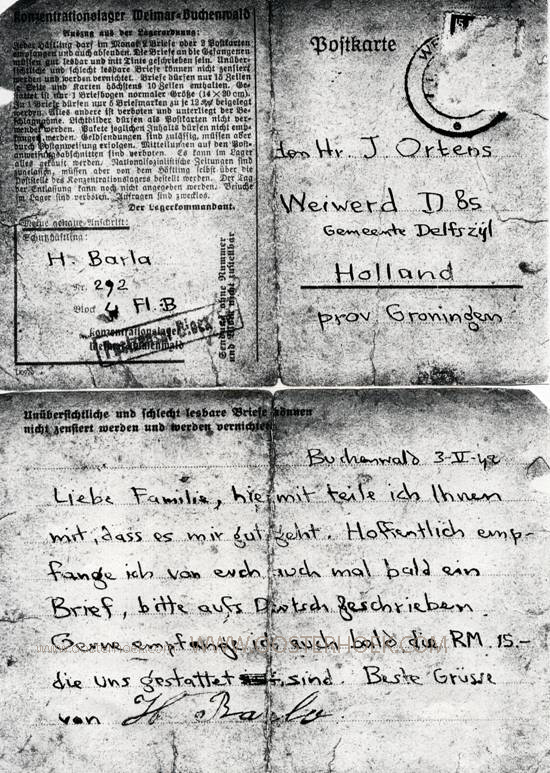 Konzentrationslager Weimar-Buchenwald
Auszug aus der Lagerordnung:
Jeder Häftling darf im Monat 2 Briefe oder 2 Postkarten
empfangen und auch absenden. Die Briefe an die Gefangenen
müssen gut lesbar mit Tinte geschrieben sein. Unüber-
sichtliche und schlecht lesbare Briefe können nicht zensiert
werden und werden vernichtet. Briefe dürfen nur 15 Zeilen
je Seite und Karten höchstens 10 Zeilen enthalten. Ge-
stattet ist nur 1 Briefbogen normaler Größe
Zu 1 Briefe dürfen nur 5 Briefmarken zu je 12 beigelegt
werden. Alles andere ist verboten und unterliegt der Be-
schlagnahme. Lichtbilder dürfen als Postkarten nicht ver-
wendet werden. Pakete jeglichen Inhalts dürfen nicht emp-
fangen werden. Geldsendungen sind zulässig, müssen aber
durch Postanweisung erfolgen. Mitteilungen auf den Post-
anweisungabschnitten sind verboten. Es kann im Lager
alles gekauft werden. Nationalsozialistische Zeitungen sind
zugelassen, müssen aber von dem Häftling selbst über die
Poststelle des Konzentrationslagers bestellt werden. Der Tag
der Entlassung kann noch nicht angegeben werden. Besuche
im Lager sind verboten. Anfragen sind zwecklos.
Der Lagerkommandant.
Meine genaue Anschrift:
Schutzhäftling:
H. Barla
Nr. 292
Block 4 Fl. B
Konzentrationslager
Weimar-Buchenwald
Sendungen ohne Nummer
und Block nicht zustellbar
Postkarte
den Hr. J Ortens
Weiwerd D 85
Gemeente Delfszijl
Holland
prov Groningen
Unübersichtliche und schlecht lesbare Briefe können
nicht zensiert werden und werden vernichtet
Buchenwald 3-VI-42
Liebe Familie, hiermit teile ich Ihnen
mit, dass es mir gut geht. Hoffentlich emp-
fange ich von euch auch mal bald ein
Brief, bitte aufs Deutsch geschrieben
Gerne empfange ich auch bald die RM 15.-
die uns gestattet sind. Beste Grüsse
von H Barla.
WWW.OOSTERHOEK.COM